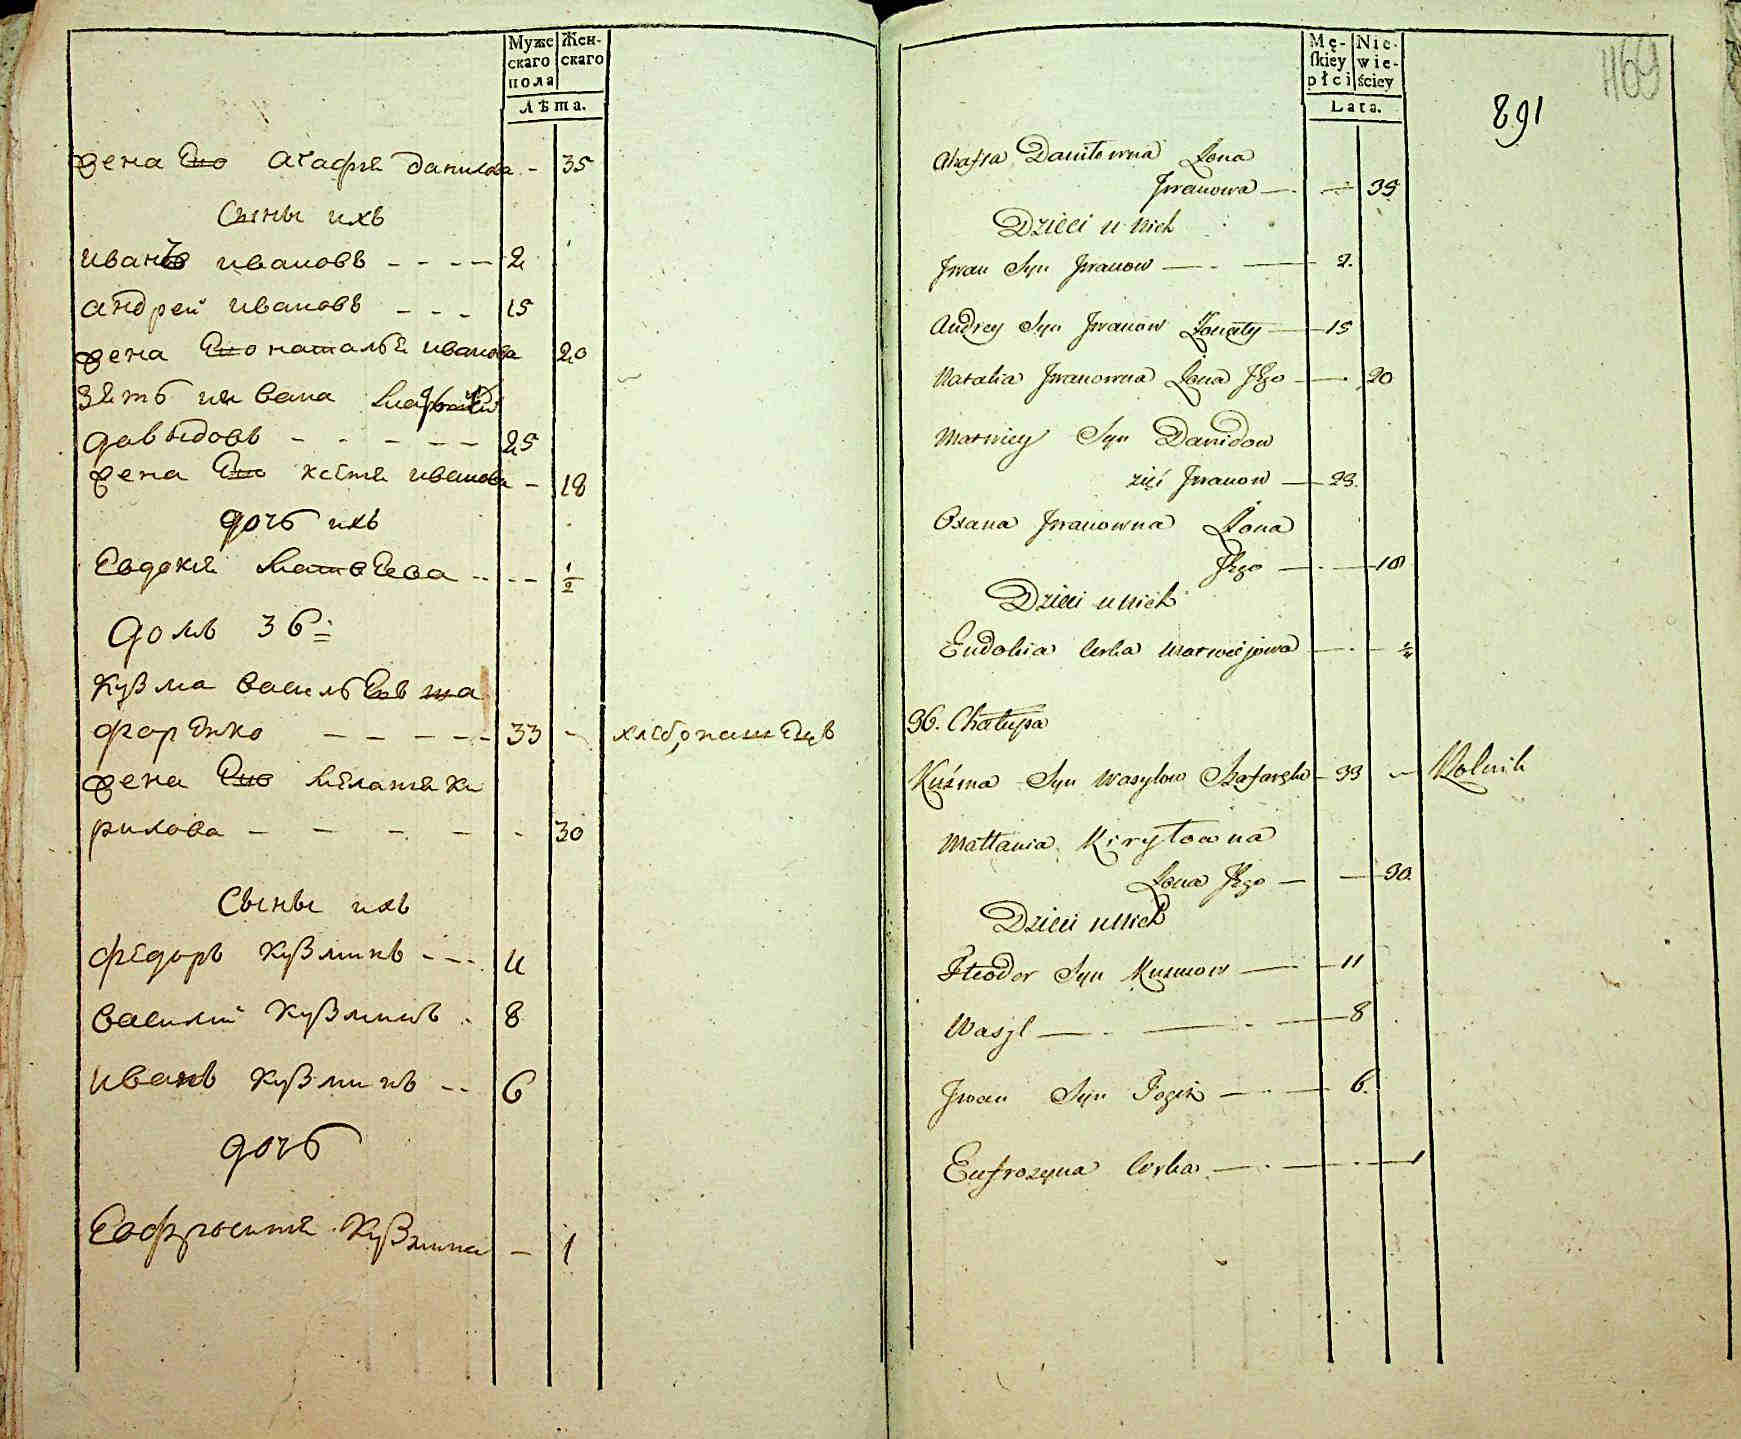 Муже
скаго
пола
Жен-
скаго
Лѣта.
жена Его агафия данилова - 35
Сыны ихъ
иванъ ивановъ - - - - 2
андрей ивановъ - - - 15
жена Его наталья иванова 20
зять ивана
давыдовъ - - - - - 25
жена Его иванова - 18
дочь ихъ
Евдокия матвеева - - - 1/2
домъ 36:
кузма васильевъ ша
фаренко - - - - - 33 - хлебопашецъ
жена Его меланья ки
рилова - - - - - 30
Сыны ихъ
федоръ кузминъ - - - 11
василий кузминъ . 8
иванъ кузминъ - - 6
дочь
Евфросиния кузмина - 1
Mę-
skiey
płci
Nie-
wie-
ściey
Lata.
891
1169
Ahafia Daniłowna Żona
Jwanowa — 35
Dzieci u nich
Jwan Syn Jwanow — 2.
Andrey Syn Jwanow Żonaty — 15
Natalia Jwanowna Żona Jego — 20
Matwiey Syn Dawidow
zięć Jwanow — 25.
Oxana Jwanowna Żona
Jego — 18
Dzieci u nich
Eudokia Corka Matwiejowa — 1/2
36. Chałupa
Kuźma Syn Wasylow Szafareńko — 33 — Rolnik
Małłania Kiryłowna
Żona Jego — 30.
Dzieci u nich
Fteodor Syn Kuzmow — 11
Wasyl — 8
Jwan Syn Togoż — 6.
Eufrozyna Corka — 1